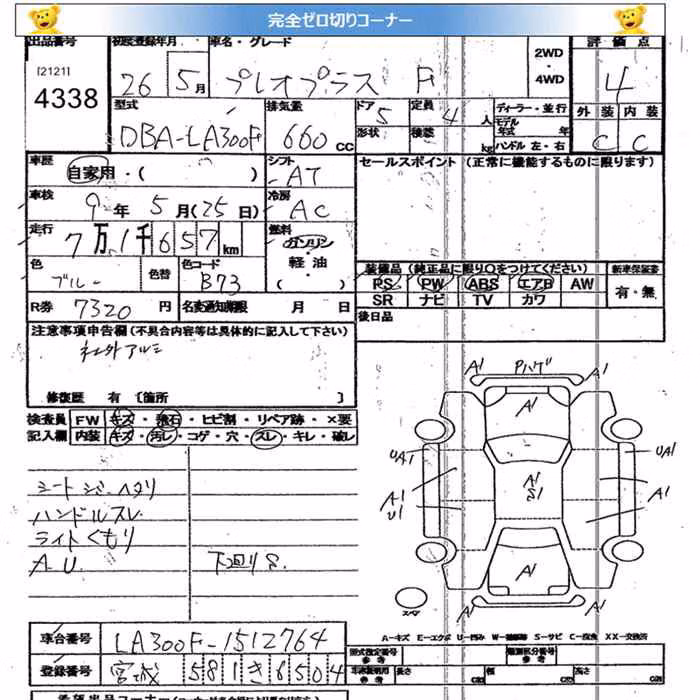 完全ゼロ切りコーナー
出品番号 初度登録年月 車名・グレード 2WD・4WD 評価点
[2121]
4338 26 5月 プレオプラス F 4
型式 排気量 ドア 5 定員 4人 ディーラー・並行 外装 内装
DBA-LA300F 660cc 形状 積載 kg モデル年式 年 C C
ハンドル 左・右
車歴 自家用・( ) シフト AT セールスポイント (正常に機能するものに限ります)
車検 9年5月(25日) 冷房 AC
走行 7万1千657km 燃料 ガソリン・軽油・( )
色 ブルー 色替 色コード B73 装備品 (純正品に限り○をつけてください) 新車保証書
PS PW ABS エアB AW 有・無
SR ナビ TV カワ
R券 7320円 名義変更期限 月 日 後日品
注意事項申告欄 (不具合内容等は具体的に記入して下さい)
社外アルミ
修復歴 有 [箇所 ]
検査員 FW キズ・飛石・ヒビ割・リペア跡・×要
記入欄 内装 キズ・汚レ・コゲ・穴・スレ・キレ・破レ
A1 Pハゲ A1
A1
UA1 UA1
A1 S1
A1 U1 A1
A1
A1 A1
シートシミ・ヘタリ
ハンドルスレ
ライトくもり
A.U 下回りS
スペア
A-キズ E-エクボ U-凹み W-補修跡 S-サビ C-腐食 XX-交換済
車台番号 LA300F-1512764
型式指定番号 参考 類別区分番号 参考
登録番号 宮城 581 さ 6504 長さ cm 幅 cm 高さ cm
希望出品コーナー